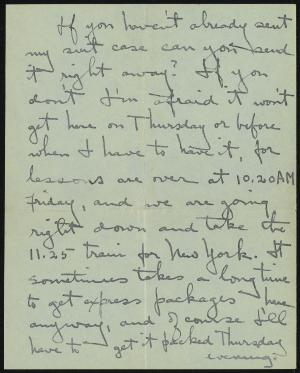 If you haven't already sent
my suit case can you send
it right away? If you
don't I'm afraid it won't
get here on Thursday or before
when I have to have it, for
lessons are over at 10.20 AM
Friday, and we are going
right down and take the
11.25 train for New York. It
sometimes takes a long time
to get express packages here
anyway, and of course I'll
have to get it packed Thursday
evening.